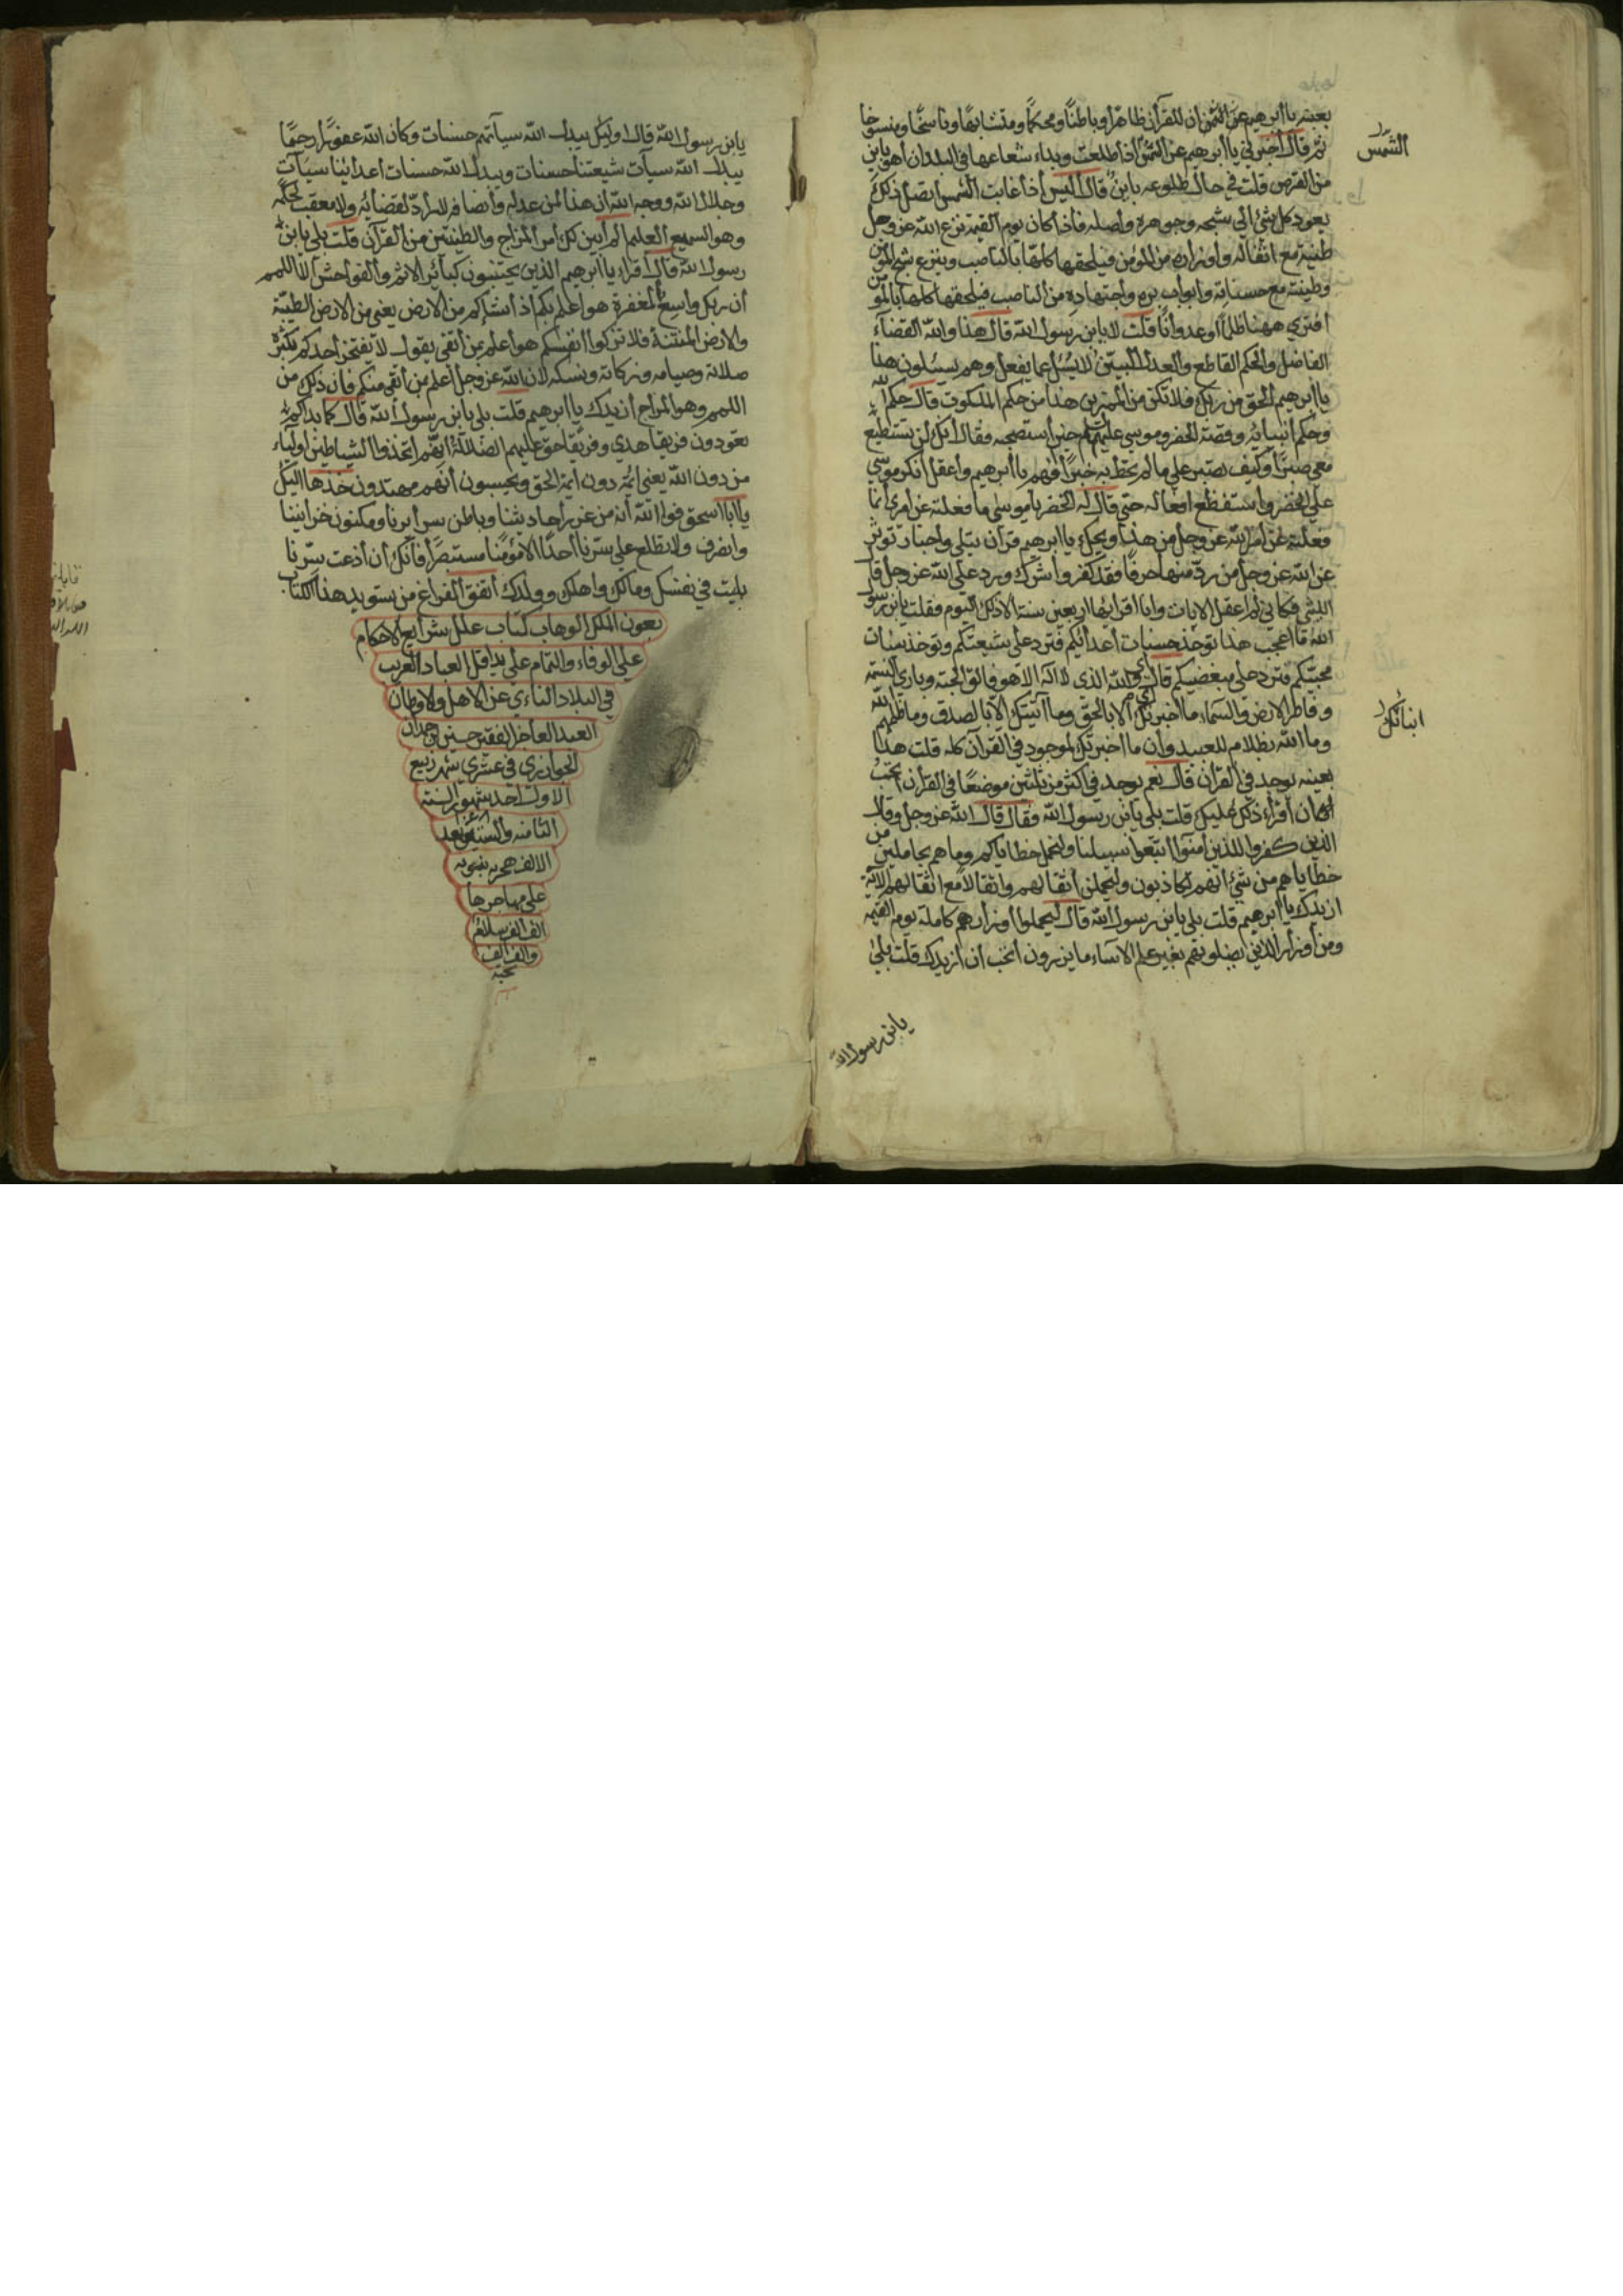 بعينه يا ابرهيم عن الشمس ان للقرآن ظاهرًا وباطنًا ومحكمًا ومتشابهًا وناسخًا ومنسوخا
الشمس
ثم قال اخبرني يا ابرهيم عن الشمس اذا طلعت وبداء شعاعها في البلدان أهو باين
من القرص قلت في حال طلوعه باين قال اليس اذا غابت الشمس اتصل ذلك
يعود كل شئ الى سنخه وجوهره واصله فاذا كان يوم القيمة نزع الله عز وجل
طينته مع اثقاله واوزاره من المؤمن فيلحقها كلها بالناصب وينزع سنخ المؤمن
وطينته مع حسناته وابواب بره واجتهاده من الناصب فيلحقها كلها بالمؤمن
افترى ههنا ظلمًا اوعدوانًا قلت لا يابن رسول الله قال هذا والله القضاء
الفاضل والحكم القاطع والعدل المبين لا يسئل عما يفعل وهم يسئلون هذا
يا ابرهيم الحق من ربك فلا تكن من الممترين هذا من حكم الملكوت قال حكم الله
وحكم انبيائه وقصة الخضر وموسى عليهم حين استصحبه فقال انك لن تستطيع
معي صبرًا وكيف تصبر على ما لم تحط به خبرًا افهم يا ابرهيم واعقل انكر موسى
على الخضر واستفظع افعاله حتى قال له الخضر يا موسى ما فعلته عن امري انما
فعلته عن امر الله عز وجل من هذا ويحك يا ابرهيم قرآن يتلى واخبار توثر
عن الله عز وجل من رد منها حرفًا فقد كفر واشرك ورد على الله عز وجل قال
الليثي فكاني لم اعقل الايات وانا اقرأها اربعين سنة الا ذلك اليوم فقلت يابن رسول
الله ما اعجب هذا توخذ حسنات أعدائكم فترد على شيعتكم وتوخذ سيئات
محبيكم فترد على مبغضيكم قال اي والله الذي لا اله الا هو فالق الحبة وبارئ النسمة
وفاطر الارض والسماء ما اخبرتك الا بالحق وما اتيتك الا بالصدق وما ظلمهم الله
انبائك
وما الله بظلام للعبيد وان ما اخبرتك لموجود في القرآن كله قلت هذا
بعينه يوجد في القرآن قال نعم يوجد في اكثر من ثلثين موضعًا في القرآن اتحب
ان اقراء ذلك عليك قلت بلى يابن رسول الله فقال قال الله عز وجل وقال
الذين كفروا للذين آمنوا اتبعوا سبيلنا ولنحمل خطاياكم وما هم بحاملين من
خطاياهم من شئ انهم لكاذبون وليحملن أثقالهم واثقالًا مع اثقالهم الاية
ازيدك يا ابرهيم قلت بلى يابن رسول الله قال ليحملوا أوزارهم كاملة يوم القيمة
ومن أوزار الذين يضلونهم بغير علم الا ساء ما يزرون اتحب ان ازيدك قلت بلى
يابن رسول الله
يابن رسول الله قال اولئك يبدل الله سيآتهم حسنات وكان الله غفورًا رحيمًا
يبدل الله سيآت شيعتنا حسنات ويبدل الله حسنات أعدائنا سيآت
وجلال الله ووجه الله ان هذا لمن عدله وانصافه لا راد لقضائه ولا معقب لحكمه
وهو السميع العليم الم ابين لك امر المزاج والطينتين من القرآن قلت بلى يابن
رسول الله قال اقراء يا ابرهيم الذين يجتنبون كبائر الاثم والفواحش الا اللمم
ان ربك واسع المغفرة هو اعلم بكم اذ انشاكم من الارض يعني من الارض الطيبة
والارض المنتنة فلا تزكوا انفسكم هو أعلم بمن أتقى يقول لا يفتخر أحدكم بكثرة
صلاته وصيامه وزكاته ونسكه لان الله عز وجل أعلم بمن أتقى منكم فان ذلك من
اللمم وهو المزاج ازيدك يا ابرهيم قلت بلى يابن رسول الله قال كما بداكم
تعودون فريقا هدى وفريقا حق عليهم الضلالة انهم اتخذوا الشياطين اولياء
من دون الله يعني ائمة دون ايمة الحق ويحسبون أنهم مهتدون خذها اليك
يا ابا اسحق فوالله انه من غرر أحاديثنا وباطن سرايرنا ومكنون خزايننا
وانصرف ولا تطلع على سرنا أحدًا الا مؤمنًا مستبصرًا فانك ان أذعت سرنا
بليت في نفسك ومالك واهلك وولدك اتفق الفراغ من تسويد هذا الكتاب
بعون الملك الوهاب كتاب علل شرايع الاحكام
على الوفاء والتمام على يد اقل العباد الغريب
في البلاد النائي عن الاهل ولاوطان
العبد العاجز الفقير حسين بن حمدان
في عشري شهر ربيع
الاول احد شهور السنه
الثامنه والستين بعد
الالف هجريه نبويه
على مهاجرها
الف الف سلام
والف الف
تحيه